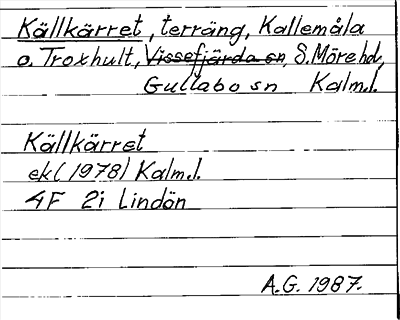 Källkärret, terräng, Kallemåla
o. Troxhult, Vissefjärda sn, S. Möre hd,
Gullabo sn Kalm.l.
Källkärret
ek (1978) Kalm.l.
4F 2i Lindön
A.G. 1987.